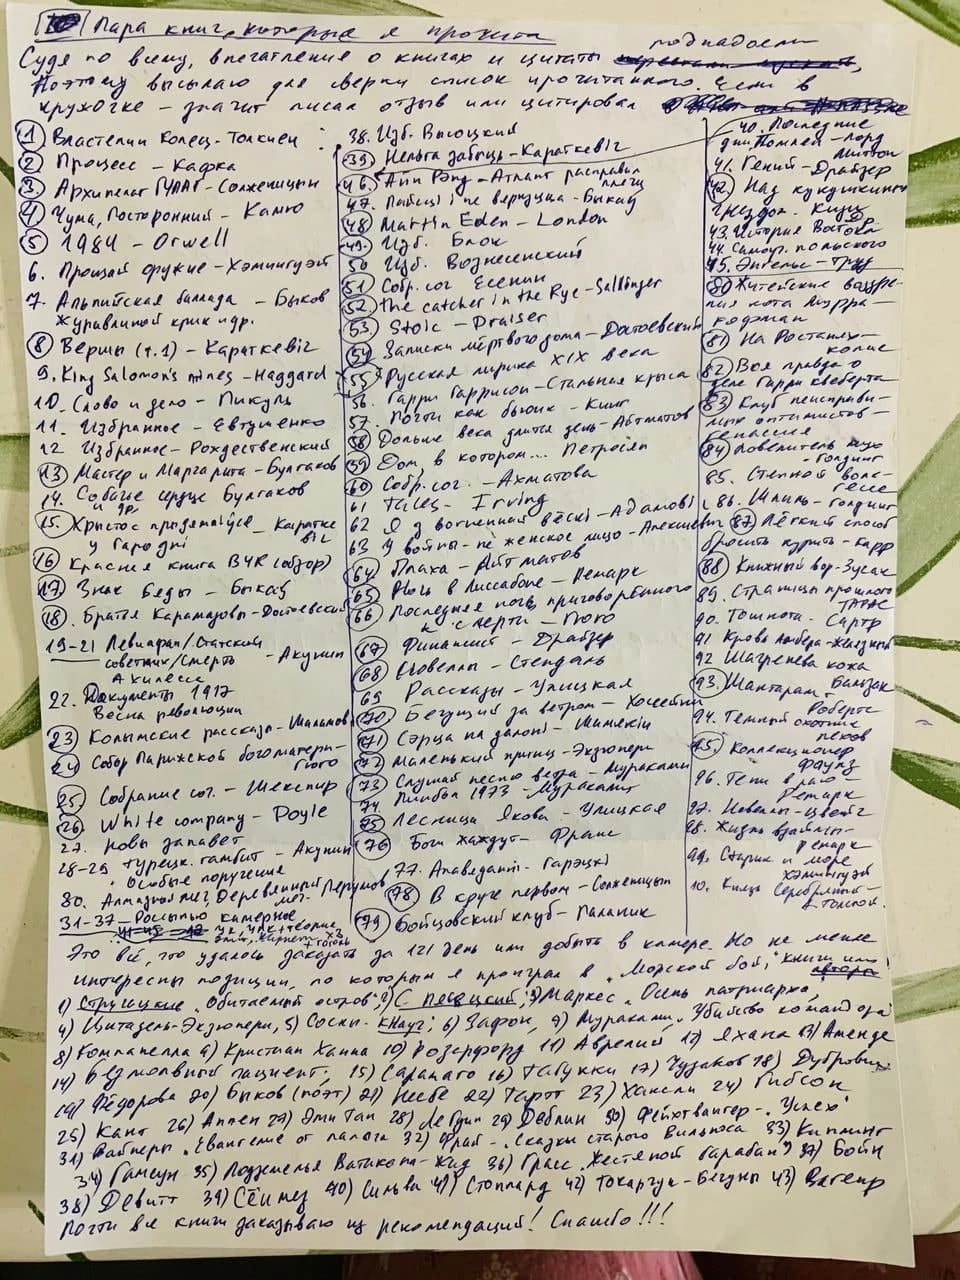 Пара книг, которые я прочитал
Судя по всему, впечатления о книгах и цитаты поднадоели
Поэтому высылаю для сверки список прочитанного. Если в
кружочке – значит писал отзыв или цитировал
1 Властелин Колец – Толкиен
2 Процесс – Кафка
3 Архипелаг ГУЛАГ – Солженицын
4 Чума, Посторонний – Камю
5 1984 – Orwell
6. Прощай оружие – Хэмингуэй
7. Альпийская баллада – Быков
Журавлиный крик и др.
8 Вершы (т.1) – Караткевіч
9. King Salomon's mines – Haggard
10. Слово и дело – Пикуль
11. Избранное – Евтушенко
12 Избранное – Рождественский
13 Мастер и Маргарита – Булгаков
14. Собачье сердце Булгаков
и др.
15. Хрыстос прызямліўся – Караткевіч
у Гародні
16 Красная книга ВЧК (обзор)
17 Знак Беды – Быкаў
18. Братья Карамазовы – Достоевский
19-21 Левиафан/Статский
советник/Смерть – Акунин
Ахиллеса
22. Документы 1917
Весна революции
23 Колымские рассказы – Шаламов
24 Собор Парижской богоматери –
Гюго
25 Собрание соч. – Шекспир
26 White company – Doyle
27. Новы запавет
28-29 Турецк. гамбит – Акунин
Особые поручения
30. Алмазный мег, Деревянный Перунов
меч
31-37 – Россыпью камерное
УК, УПК + теория
38. Изб. Высоцкий
39 Нельга забыць – Караткевіч
46. Айн Рэнд – Атлант расправил
плечи
47. Пайсці і не вярнуцца – Быкаў
48 Martin Eden – London
49. Изб. Блок
50 Изб. Вознесенский
51 Собр. соч Есенин
52 The catcher in the Rye – Sallinger
53 Stoic – Draiser
54 Записки мёртвого дома – Достоевский
55 Русская лирика XIX века
56. Гарри Гаррисон – Стальная крыса
57. Почти как бьюик – Кинг
58 Дольше века длится день – Айтматов
59 Дом, в котором... Петросян
60 Собр. соч. – Ахматова
61 Tales – Irving
62 Я з вогненнай вёскі – Адамовіч
63 У войны не женское лицо – Алексиевич
64 Плаха – Айтматов
65 Ночь в Лиссабоне – Ремарк
66 Последняя ночь приговорённого
к смерти – Гюго
67 Финансист – Драйзер
68 Новеллы – Стендаль
69 Рассказы – Улицкая
70 Бегущий за ветром – Хоссейни
71 Сэрца на далоні – Шамякін
72 Маленький принц – Экзюпери
73 Слушай песню ветра – Мураками
74. Пинбол 1973 – Мураками
75 Лесница Якова – Улицкая
76 Боги жаждут – Франс
77. Апавяданні – Гарэцкі
78 В круге первом – Солженицын
79 Бойцовский клуб – Паланик
40. Последние
дни Помпеи – лорд
Литтон
41. Гений – Драйзер
42 Над кукушкиным
гнездом – Кизи
43. История Востока
44. Самоуч. польского
45. Энгельс – Труд
80 Житейские воззрения кота Мурра –
Гофман
81 На Ростанях –
Колас
82 Вся правда о
деле Гарри Квеберта
83 Клуб неисправимых оптимистов –
Генассия
84 Повелитель мух
– Голдинг
85. Степной волк –
Гессе
86. Шпиль – Голдинг
87 Лёгкий способ
бросить курить – Карр
88 Книжный вор – Зусак
89. Страницы прошлого
90. Тошнота – Сартр
91 Кровь
92 Шагренева кожа
Бальзак
93. Шантарам –
Робертс
94. Темный охотник
95. Коллекционер
Фаулз
96. Тени в раю –
Ремарк
97. Новеллы – Цвейг
98. Жизнь взаймы –
Ремарк
99. Старик и море
Хэмингуэй
10. Князь Серебряный –
А. Толстой.
Это всё, что удалось заказать за 121 день или добыть в камере. Но не менее
интересны позиции, по которым я проиграл в "Морской бой", книги или
1) Стругацкие "Обитаемый остров", 2) С Песецкий; 3) Маркес "Осень патриарха",
4) Цитадель – Экзюпери, 5) Сосны – Кнауг; 6) Зафон, 7) Мураками "Убийство командора"
8) Компанелла 9) Кристиан Ханна 10) Розерфорд 11) Аврелий 12) Яхина 13) Альенде
14) Безмолвный пациент; 15) Сарамаго 16) Табукки 17) Чудаков 18) Дубровин
19) Фёдорова 20) Быков (поэт) 21) Несбе 22) Тартт 23) Хаксли 24) Гибсон
25) Кант 26) Аллен 27) Эми Тан 28) Ле Гуин 29) Дёблин 30) Фейхтвангер – "Успех"
31) Вайнеры "Евангелие от палача 32) Фрай – "Сказки старого Вильнюса 33) Киплинг
34) Гамсун 35) Подземелья Ватикана – Жид 36) Грасс "Жестяной барабан" 37) Бойн
38) Девитт 39) Сёймез 40) Сильва 41) Стоппард 42) Токарчук – Бегуны 43) Вагнер
Почти все книги заказываю из рекомендаций! Спасибо!!!